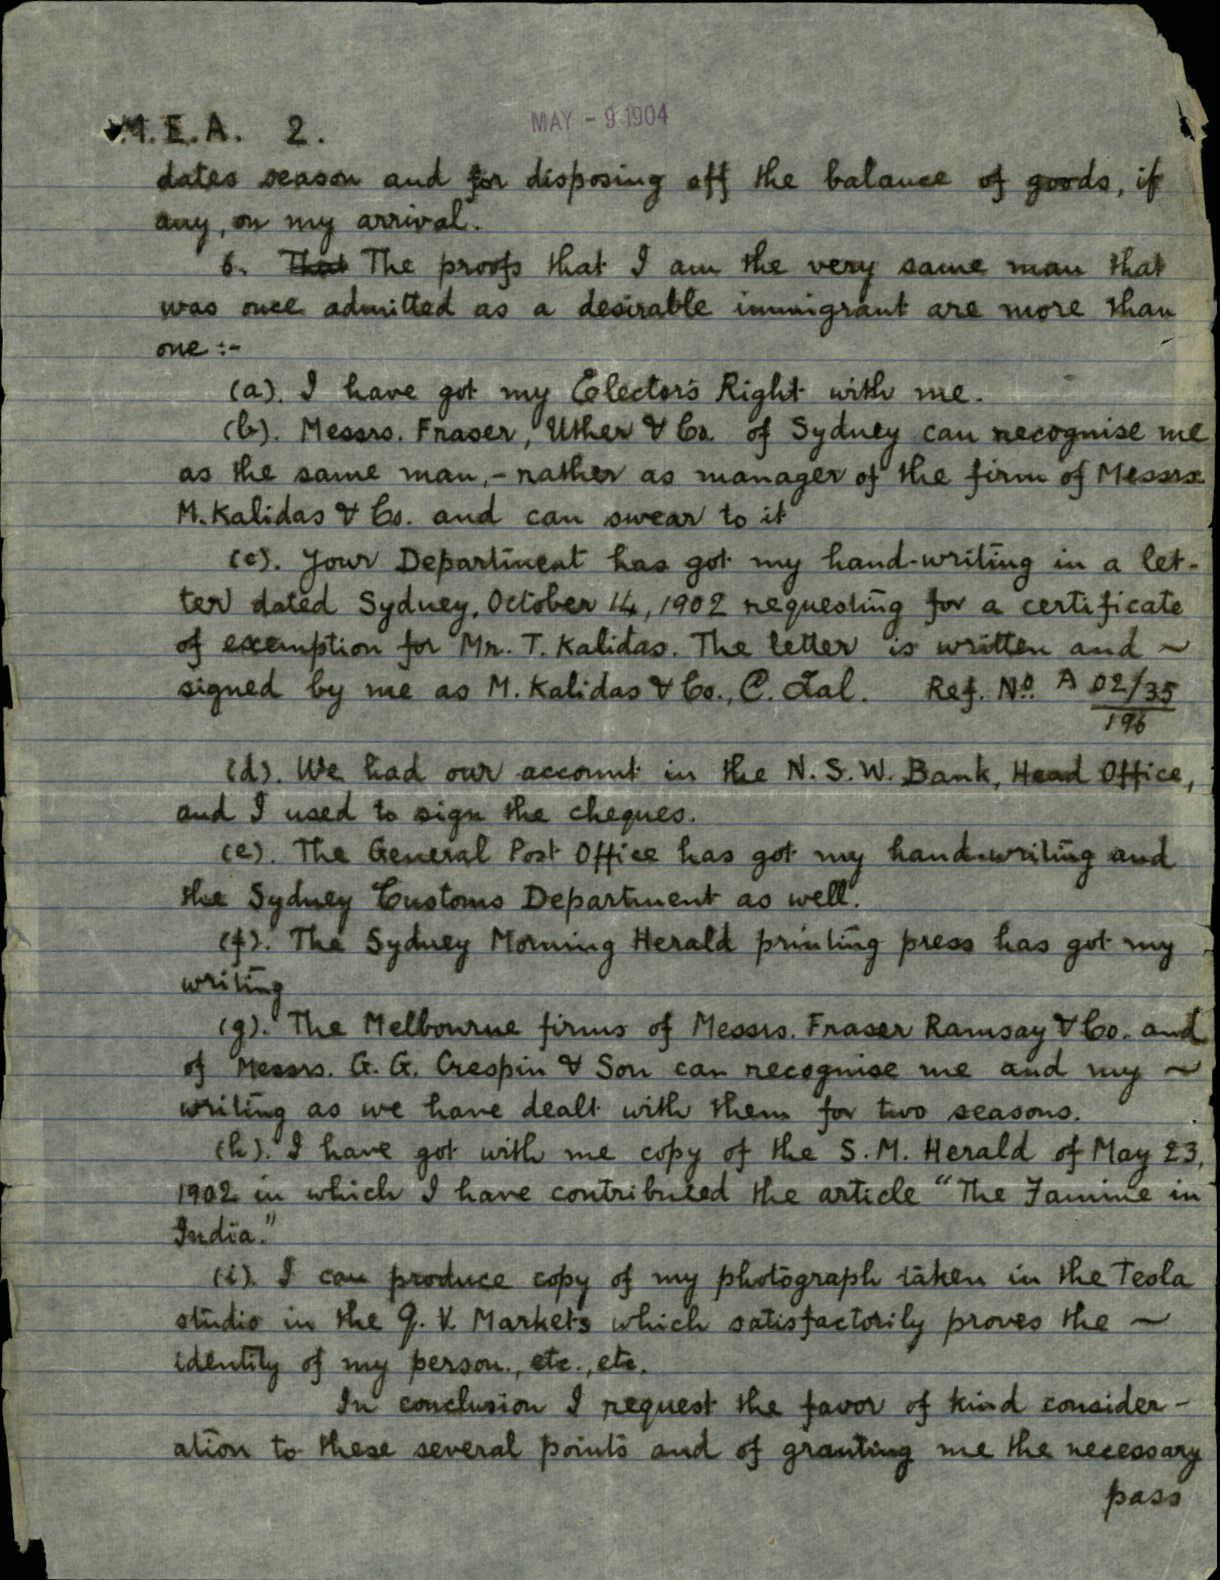 M.E.A. 2.
MAY - 9 1904
dates season and for disposing off the balance of goods, if
any, on my arrival.
6. That The proofs that I am the very same man that
was once admitted as a desirable immigrant are more than
one :-
(a). I have got my Elector's Right with me.
(b). Messrs. Fraser, Uther & Co. of Sydney can recognise me
as the same man, - rather as manager of the firm of Messrs.
M. Kalidas & Co. and can swear to it
(c). Your Department has got my hand-writing in a let-
ter dated Sydney, October 14, 1902 requesting for a certificate
of exemption for Mr. T. Kalidas. The letter is written and ~
signed by me as M. Kalidas & Co., C. Lal. Ref. No. A 02/35
196
(d). We had our account in the N. S. W. Bank, Head Office,
and I used to sign the cheques.
(e). The General Post Office has got my hand-writing and
the Sydney Customs Department as well.
(f). The Sydney Morning Herald printing press has got my
writing
(g). The Melbourne firms of Messrs. Fraser Ramsay & Co. and
of Messrs. G. G. Crespin & Son can recognise me and my ~
writing as we have dealt with them for two seasons.
(h). I have got with me copy of the S. M. Herald of May 23,
1902 in which I have contributed the article "The Famine in
India."
(i). I can produce copy of my photograph taken in the Tesla
studio in the Q. V. Markets which satisfactorily proves the ~
identity of my person., etc., etc.
In conclusion I request the favor of kind consider-
ation to these several points and of granting me the necessary
pass